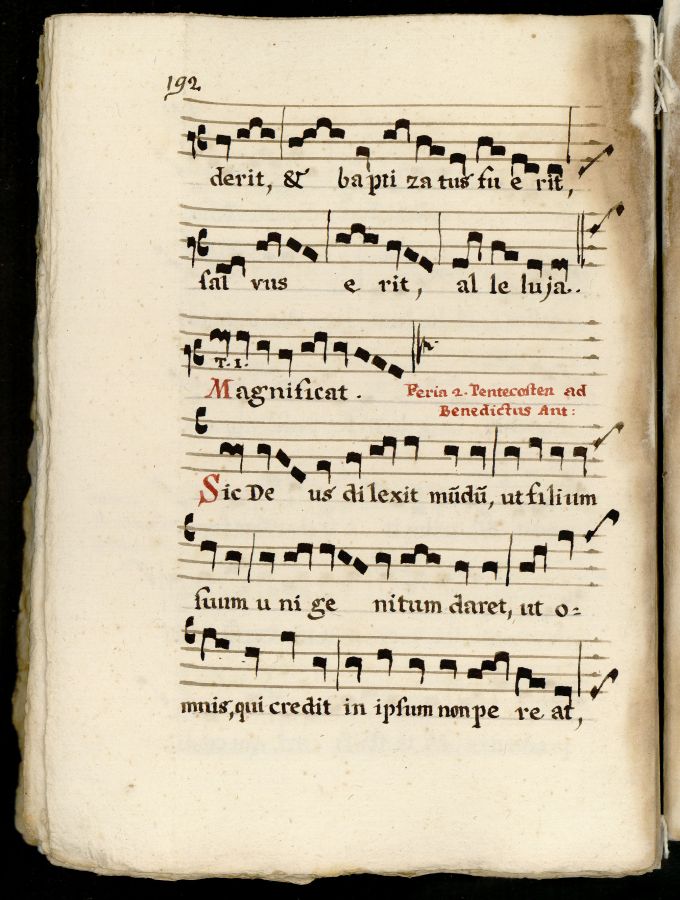 192
derit, & ba pti za tus fu e rit,
sal vus e rit, al le lu ja..
T. 1.
Magnificat. Feria 2. Pentecosten ad
Benedictus Ant:
Sic De us di lexit mūdū, ut filium
suum u ni ge nitum daret, ut o=
mnis, qui credit in ipsum non pe re at,